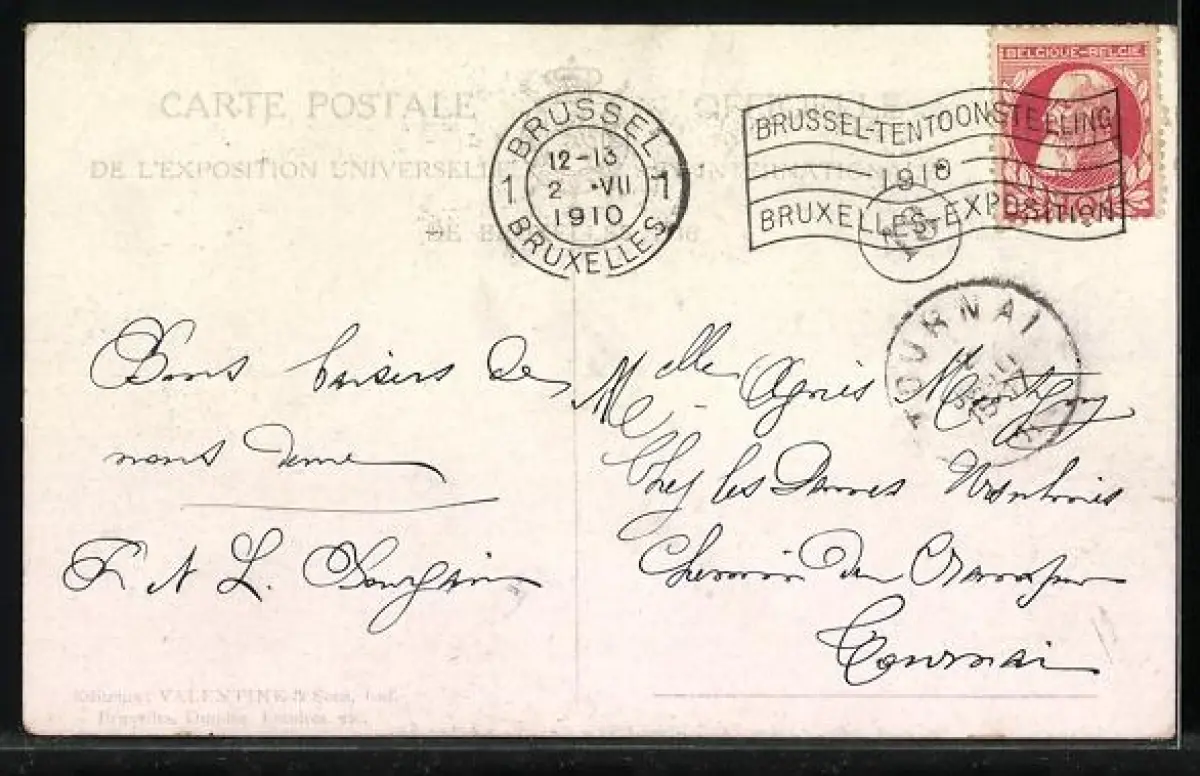 CARTE POSTALE OFFICIELLE
DE L'EXPOSITION UNIVERSELLE INTERNATIONALE
DE
BRUSSEL 1 BRUXELLES 1
12-13
2 VII
1910
BRUSSEL-TENTOONSTELLING
1910
BRUXELLES-EXPOSITION
BELGIQUE-BELGIE
TOURNAI
Bons baisers de
F. L.
Melle Agnès
Chez les Dames
Chemin du
Tournai
Editeurs: VALENTINE & Sons, Ltd.
Bruxelles, Dundee, Londres, etc.